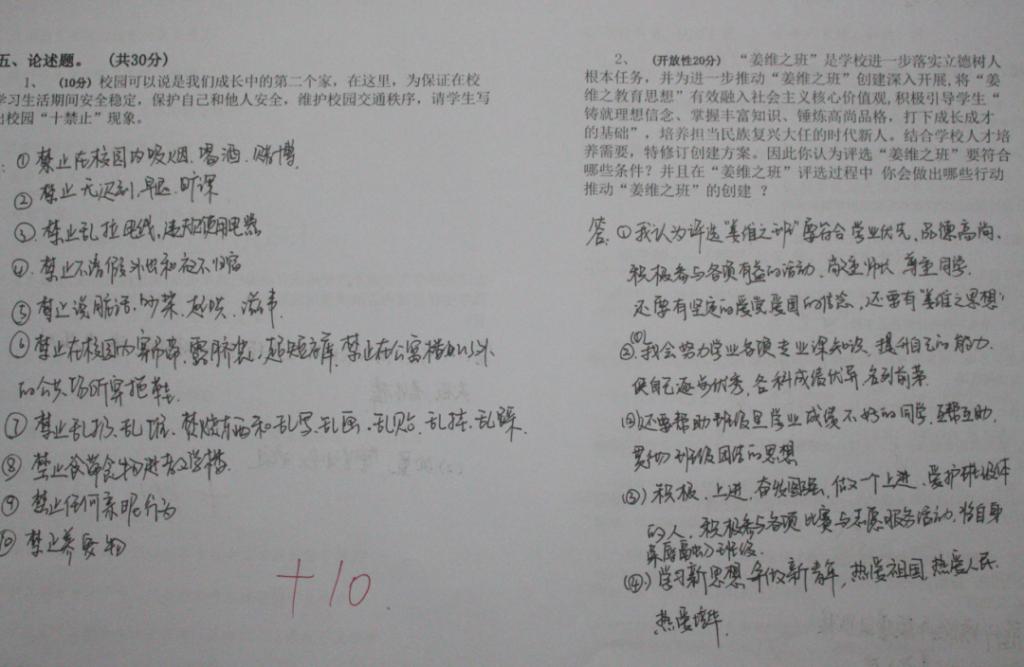 五、论述题。 （共30分）
1、 （10分）校园可以说是我们成长中的第二个家，在这里，为保证在校
学习生活期间安全稳定，保护自己和他人安全，维护校园交通秩序，请学生写
出校园“十禁止”现象。
① 禁止在校园内吸烟、喝酒、赌博
② 禁止无迟到、早退、旷课
③、禁止乱拉电线、违规使用电器
④、禁止不请假外出和夜不归宿
⑤ 禁止说脏话、吵架、起哄、滋事
⑥ 禁止在校园内穿吊带、露脐装、超短裤、禁止在公寓楼以外
的公共场所穿拖鞋.
⑦ 禁止乱扔、乱堆、焚烧东西和乱写、乱画、乱贴、乱挂、乱踩.
⑧ 禁止食带食物进教学楼.
⑨ 禁止任何亲昵行为
⑩ 禁止养宠物
+10
2、 （开放性20分） “姜维之班”是学校进一步落实立德树人
根本任务，并为进一步推动“姜维之班”创建深入开展，将“姜
维之教育思想”有效融入社会主义核心价值观，积极引导学生“
铸就理想信念、掌握丰富知识、锤炼高尚品格，打下成长成才
的基础”，培养担当民族复兴大任的时代新人。结合学校人才培
养需要，特修订创建方案。因此你认为评选“姜维之班”要符合
哪些条件？并且在“姜维之班”评选过程中 你会做出哪些行动
推动“姜维之班”的创建 ？
答：① 我认为评选“姜维之班”要符合学业优先、品德高尚、
积极参与各项有益的活动、敬重师长、尊重同学.
还要有坚定的爱党爱国的信念，还要有“姜维之思想”
②.(1)我会努力学业各项专业课知识、提升自己的能力.
使自己逐步优秀，各科成绩优异、名列前茅.
(2)还要帮助班级里学业成绩不好的同学，互帮互助.
贯彻班级团结的思想
(3) 积极、上进、奋发图强、做一个上进、爱护班级体
的人，积极参与各项比赛与志愿服务活动，将自身
(4) 学习新思想，争做新青年，热爱祖国，热爱人民.
热爱中华.